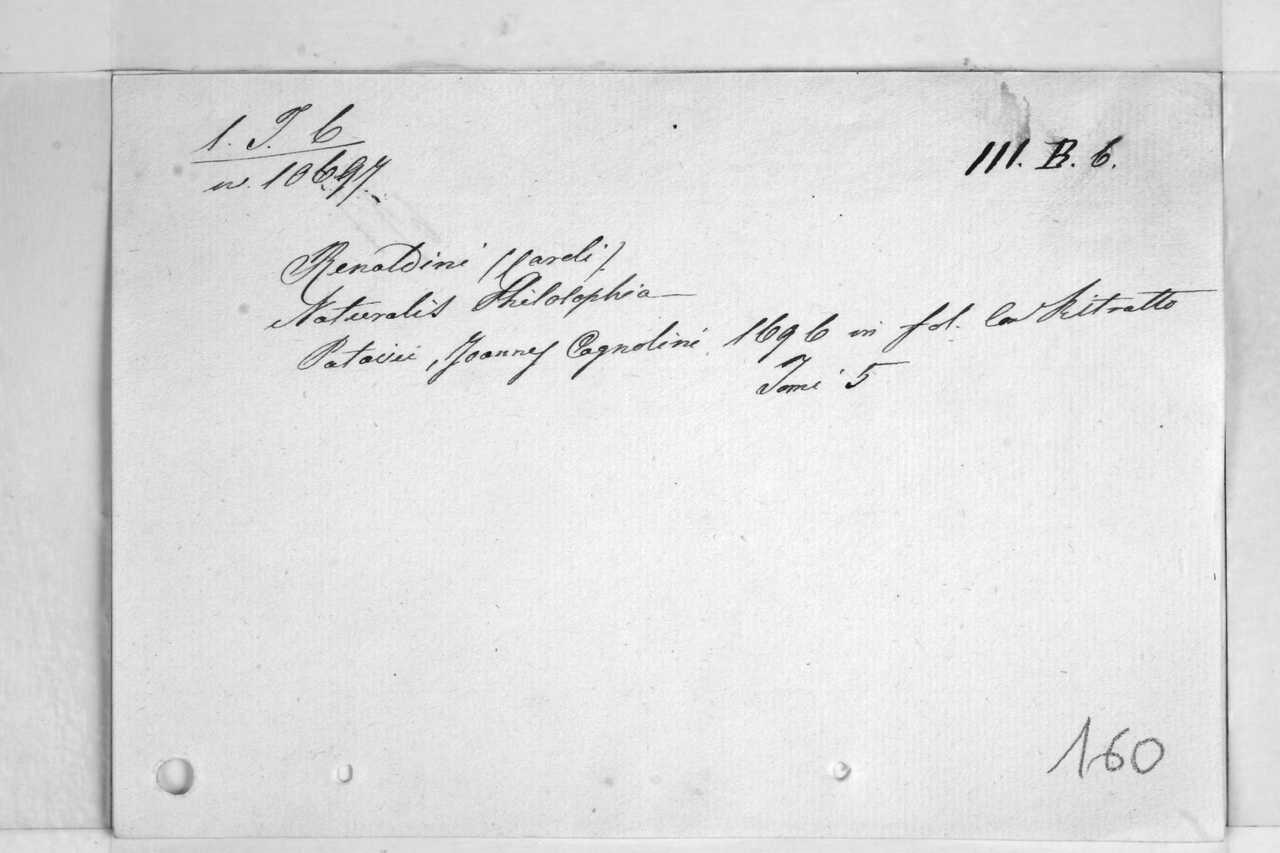 1. I. 6
n. 10697.
III. B. 6.
Renaldini (Caroli)
Naturalis Philosophia
Patavii, Joannes Cagnolini 1696 in fol. con Ritratto
Tomi 5
160